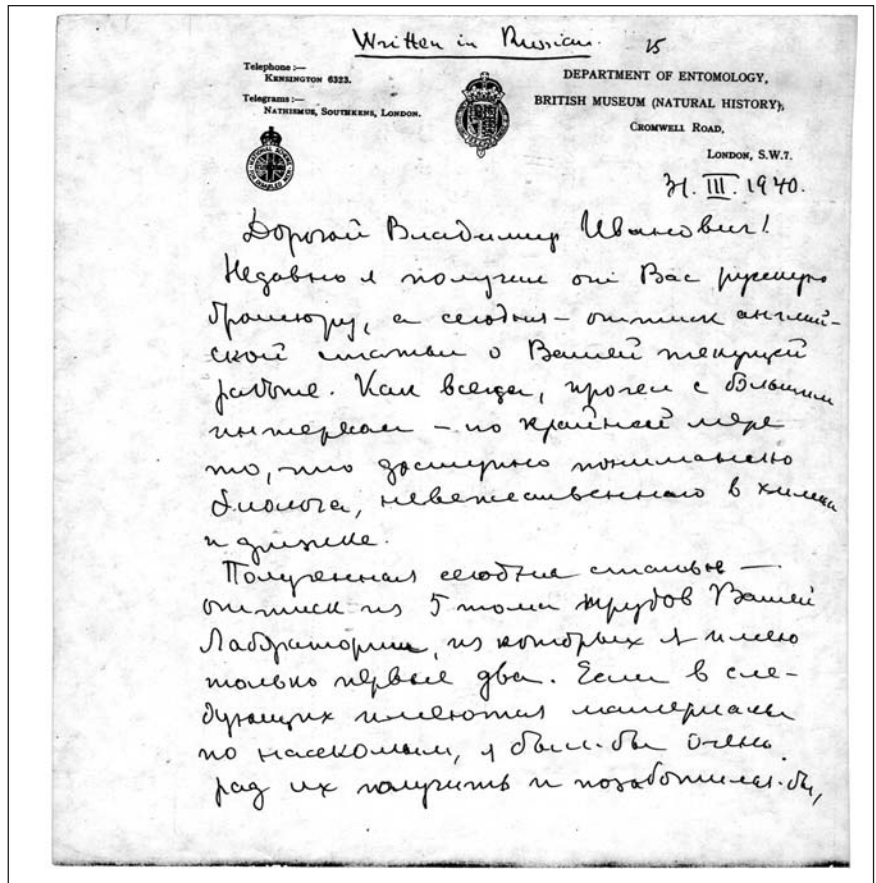 Written in Russian. 25
Telephone :—
KENSINGTON 6323.
Telegrams :—
NATHISMUS, SOUTHKENS, LONDON.
DEPARTMENT OF ENTOMOLOGY,
BRITISH MUSEUM (NATURAL HISTORY),
CROMWELL ROAD,
LONDON, S.W.7.
31. III. 1940.
Дорогой Владимир Иванович!
Недавно я получил от Вас русскую
брошюру, а сегодня – оттиск англий-
ской статьи о Вашей текущей
работе. Как всегда, прочел с большим
интересом – по крайней мере
то, что доступно пониманию
биолога, невежественного в химии
и физике.
Полученная сегодня статья —
оттиск из 5 тома трудов Вашей
Лаборатории, из которых я имею
только первые два. Если в сле-
дующих имеются материалы
по насекомым, я был-бы очень
рад их получить и позаботился-бы,